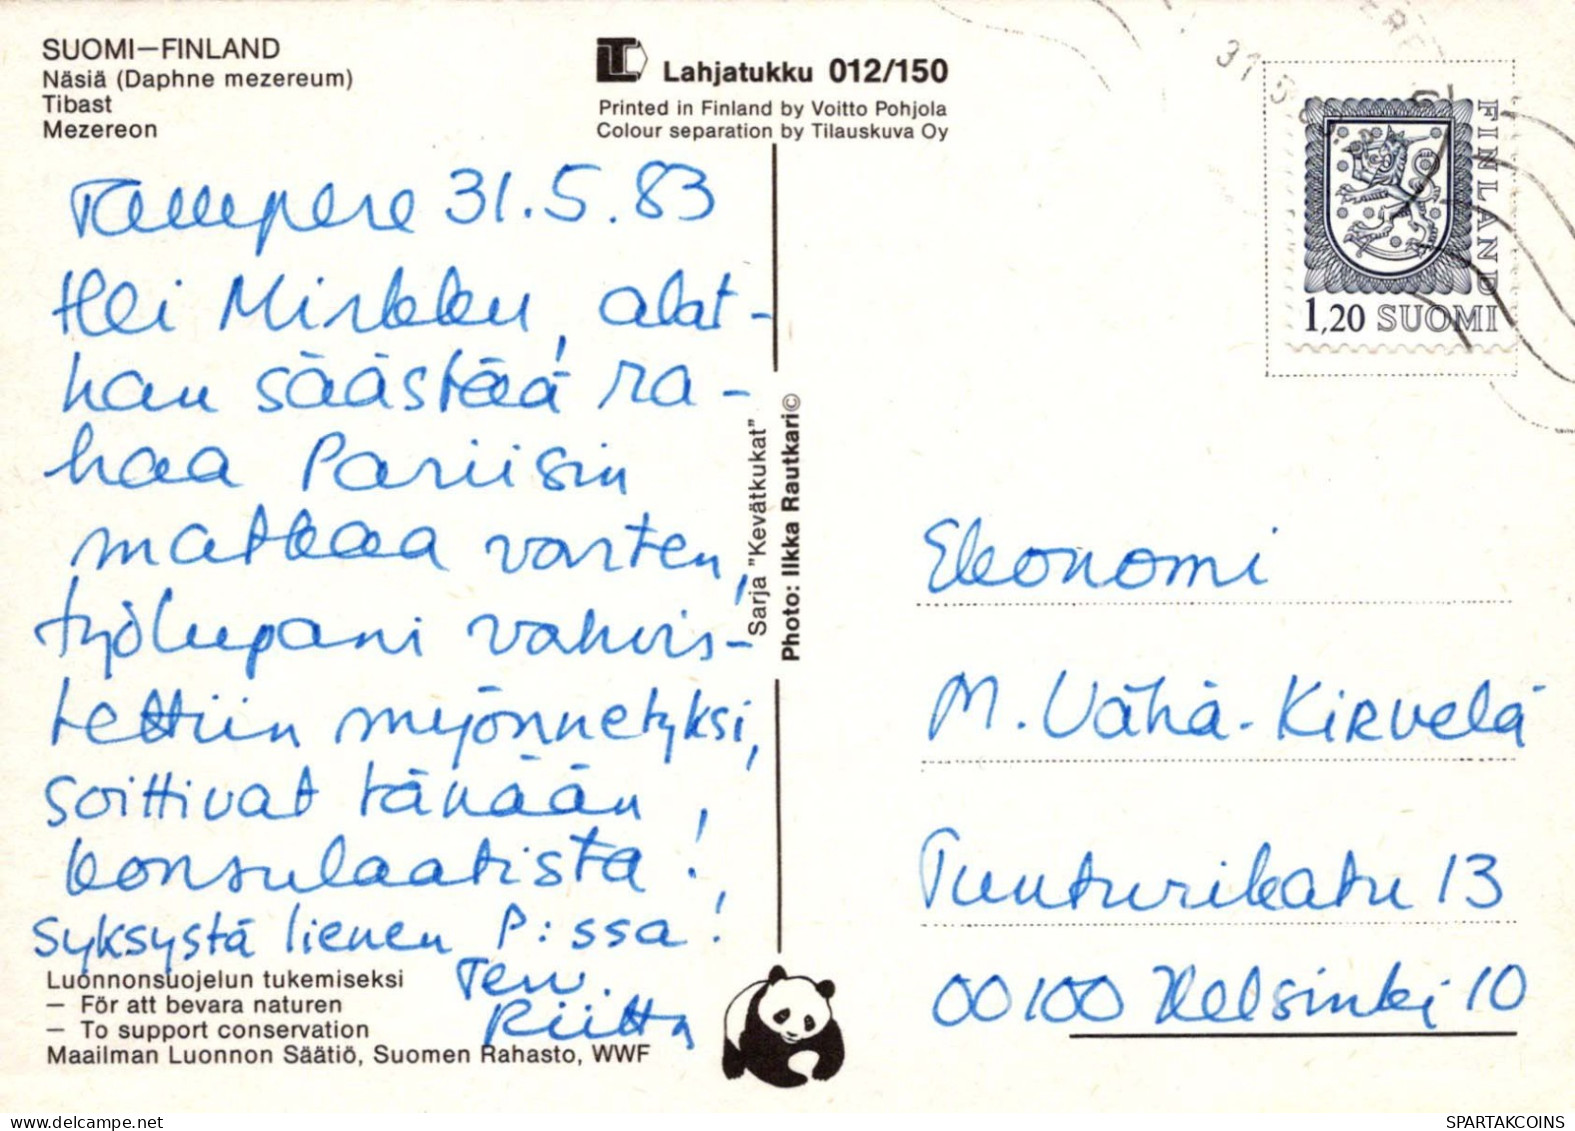 SUOMI—FINLAND
Näsiä (Daphne mezereum)
Tibast
Mezereon
Lahjatukku 012/150
Printed in Finland by Voitto Pohjola
Colour separation by Tilauskuva Oy
31.5
FINLAND
1,20 SUOMI
Tampere 31.5.83
Hei Mirkku, alat-
han säästää ra-
haa Pariisin
matkaa varten,
työlupani vahvis-
tettiin myönnetyksi,
soittivat tänään
konsulaatista!
Syksystä lienen P:ssa!
Terv.
Riitta
Sarja "Kevätkukat"
Photo: Ilkka Rautkari©
Ekonomi
M. Vähä-Kirvelä
Tunturikatu 13
00100 Helsinki 10
Luonnonsuojelun tukemiseksi
— För att bevara naturen
— To support conservation
Maailman Luonnon Säätiö, Suomen Rahasto, WWF
SPARTAKCOINS